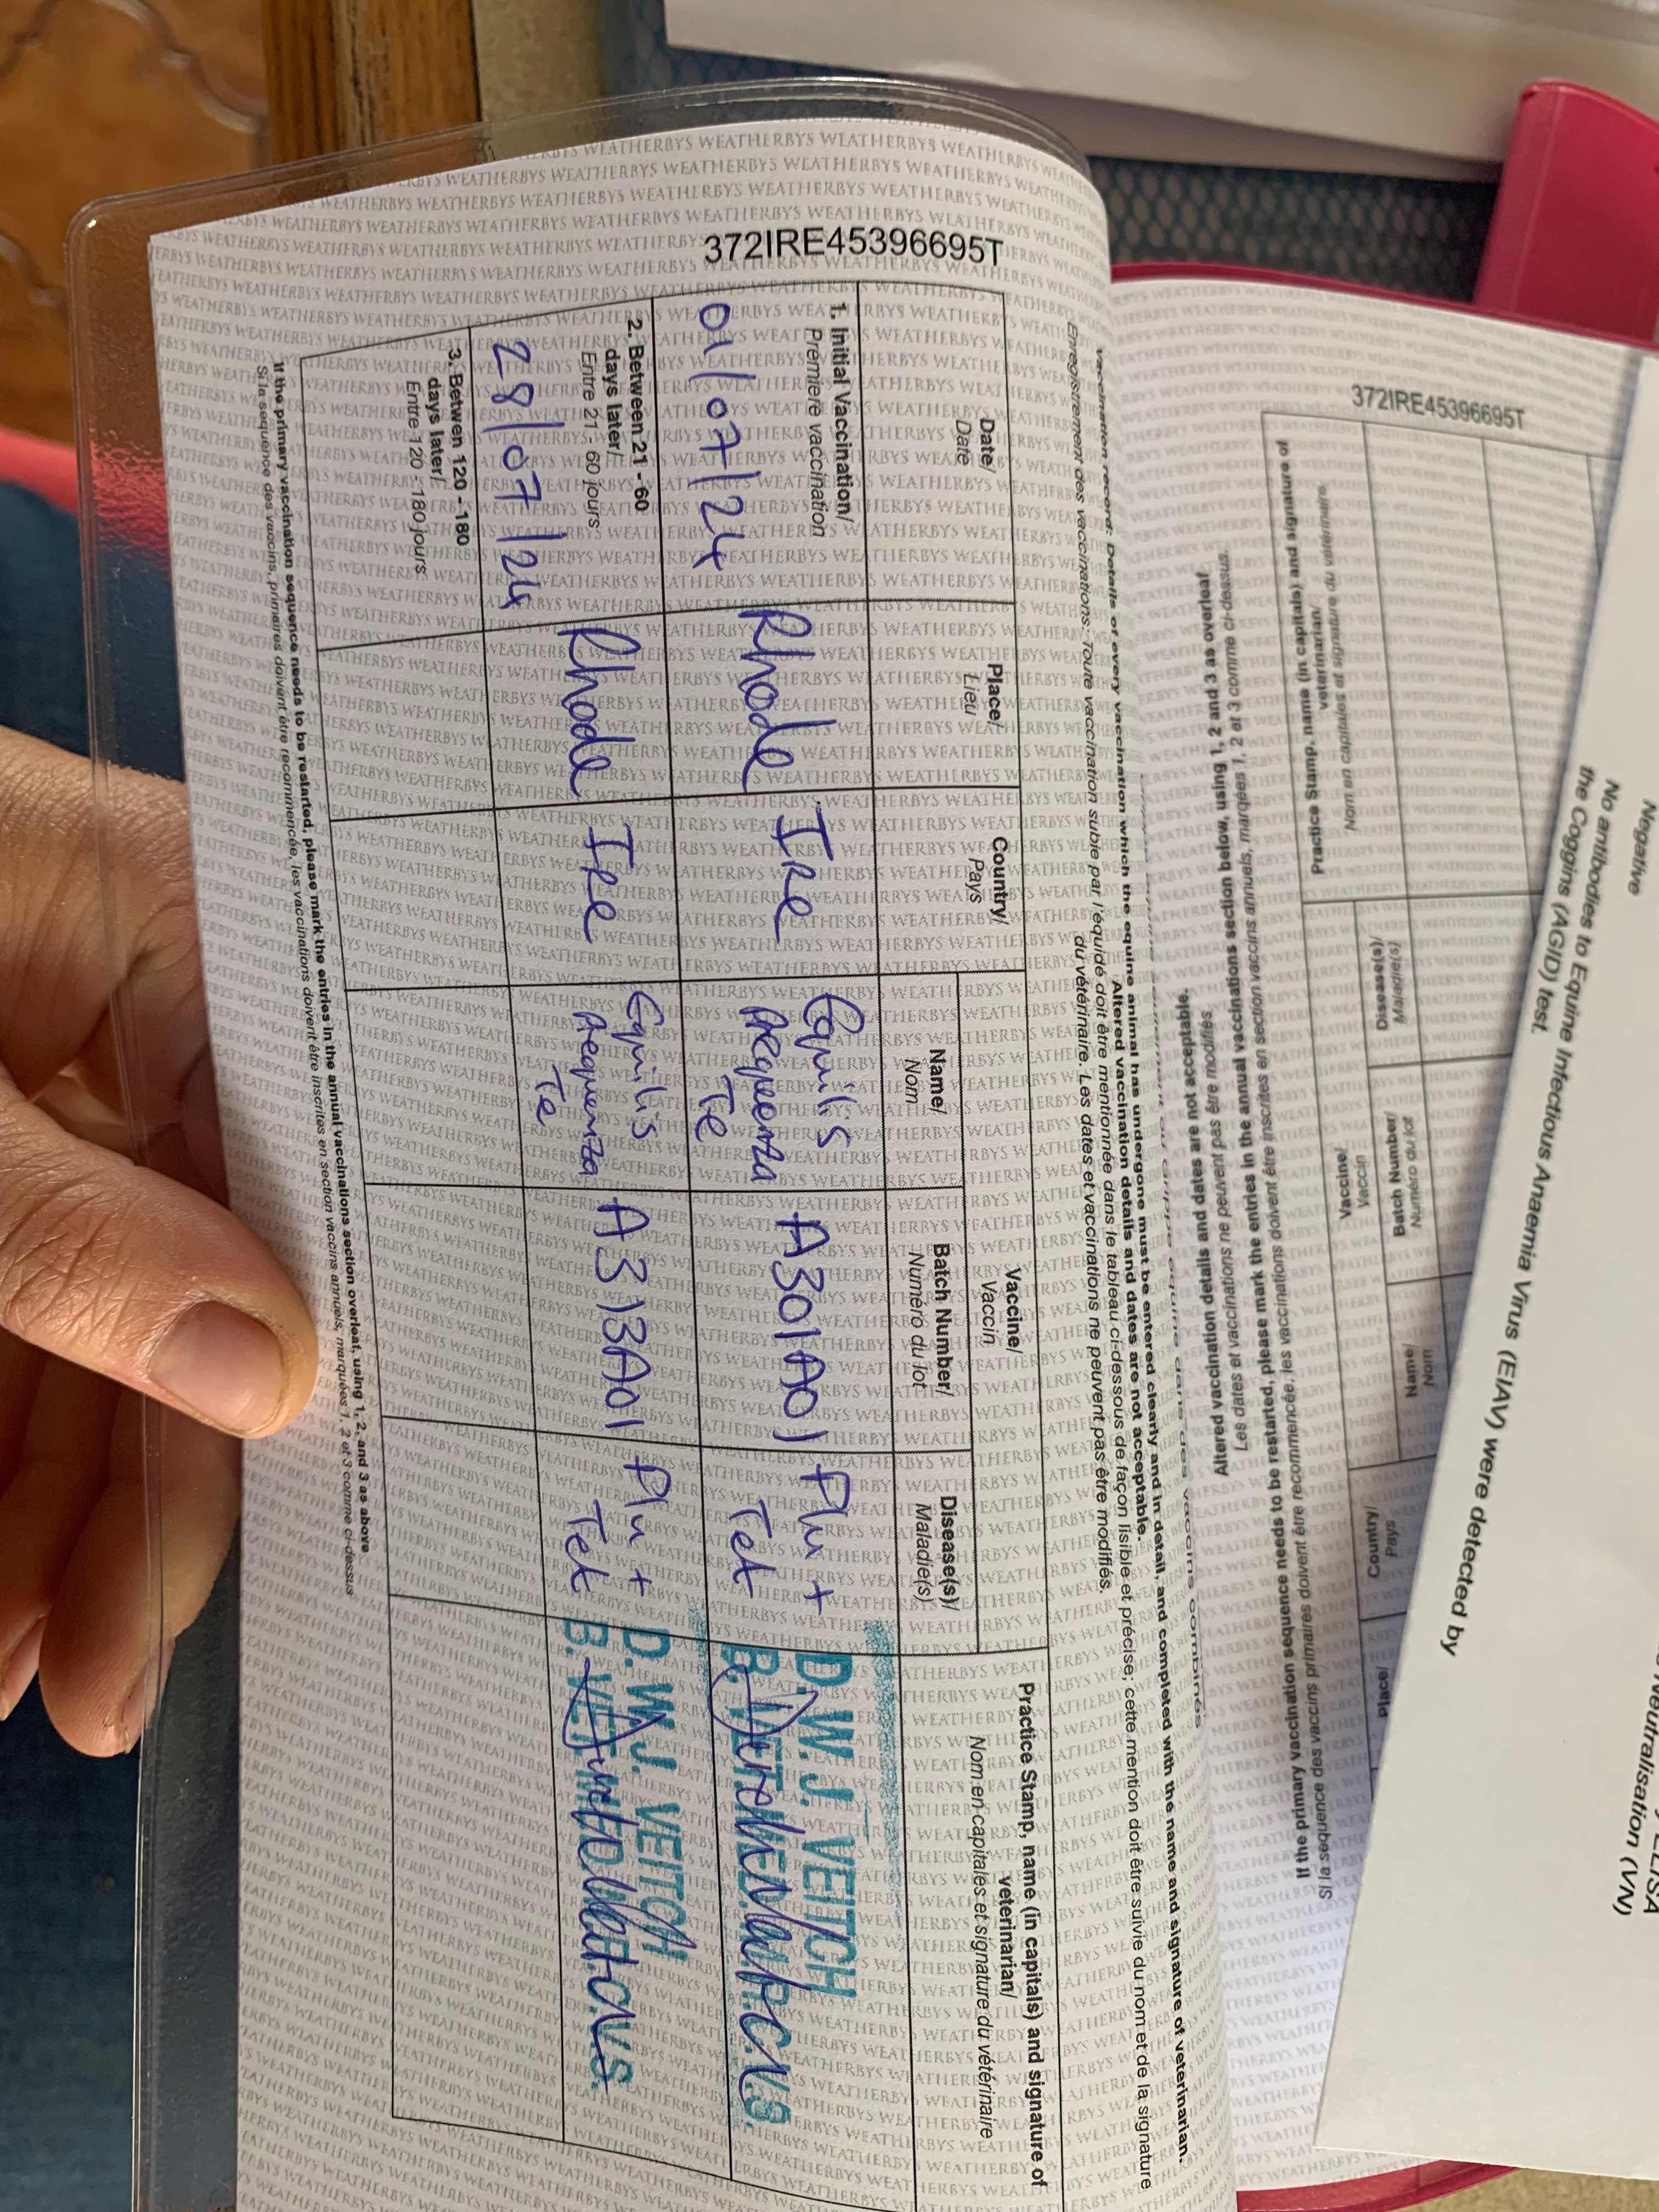 372IRE45396695T
Vaccination record: Details of every vaccination which the equine animal has undergone must be entered clearly and in detail, and completed with the name and signature of veterinarian.
Altered vaccination details and dates are not acceptable.
Enregistrement des vaccinations: Toute vaccination subie par l'équidé doit être mentionnée dans le tableau ci-dessous de façon lisible et précise; cette mention doit être suivie du nom et de la signature
du vétérinaire. Les dates et vaccinations ne peuvent pas être modifiés.
Date/
Date
Place/
Lieu
Country/
Pays
Vaccine/
Vaccin
Name/
Nom
Batch Number/
Numéro du lot
Disease(s)/
Maladie(s)
Practice Stamp, name (in capitals) and signature of
veterinarian/
Nom en capitales et signature du vétérinaire
1. Initial Vaccination/
Première vaccination
01/07/24
Rhode
Ire
Equilis
Prequenza
Te
A301A01
Flu +
Tet
D. W. J. VEITCH
B. VET. MED. M.R.C.V.S.
2. Between 21 - 60
days later/
Entre 21 - 60 jours
28/07/24
Rhode
Ire
Equilis
Prequenza
Te
A313A01
Flu +
Tet
D. W. J. VEITCH
B. VET. MED. M.R.C.V.S.
3. Betwen 120 - 180
days later/
Entre 120 - 180 jours
If the primary vaccination sequence needs to be restarted, please mark the entries in the annual vaccinations section overleaf, using 1, 2, and 3 as above
Si la séquence des vaccins, primaires doivent être recommencée, les vaccinations doivent être inscrites en section vaccins annuels, marquées 1, 2 et 3 comme ci-dessus
372IRE45396695T
Altered vaccination details and dates are not acceptable.
Les dates et vaccinations ne peuvent pas être modifiés.
If the primary vaccination sequence needs to be restarted, please mark the entries in the annual vaccinations section below, using 1, 2 and 3 as overleaf
Si la séquence des vaccins primaires doivent être recommencée, les vaccinations doivent être inscrites en section vaccins annuels, marqées 1, 2 at 3 comme ci-dessus.
Place/
Country/
Pays
Vaccine/
Vaccin
Name/
Nom
Batch Number/
Numéro du lot
Disease(s)/
Maladie(s)
Practice Stamp, name (in capitals) and signature of
veterinarian/
Nom en capitales et signature du vétérinaire
Negative
No antibodies to Equine Infectious Anaemia Virus (EIAV) were detected by
the Coggins (AGID) test.
ELISA
Neutralisation (VN)